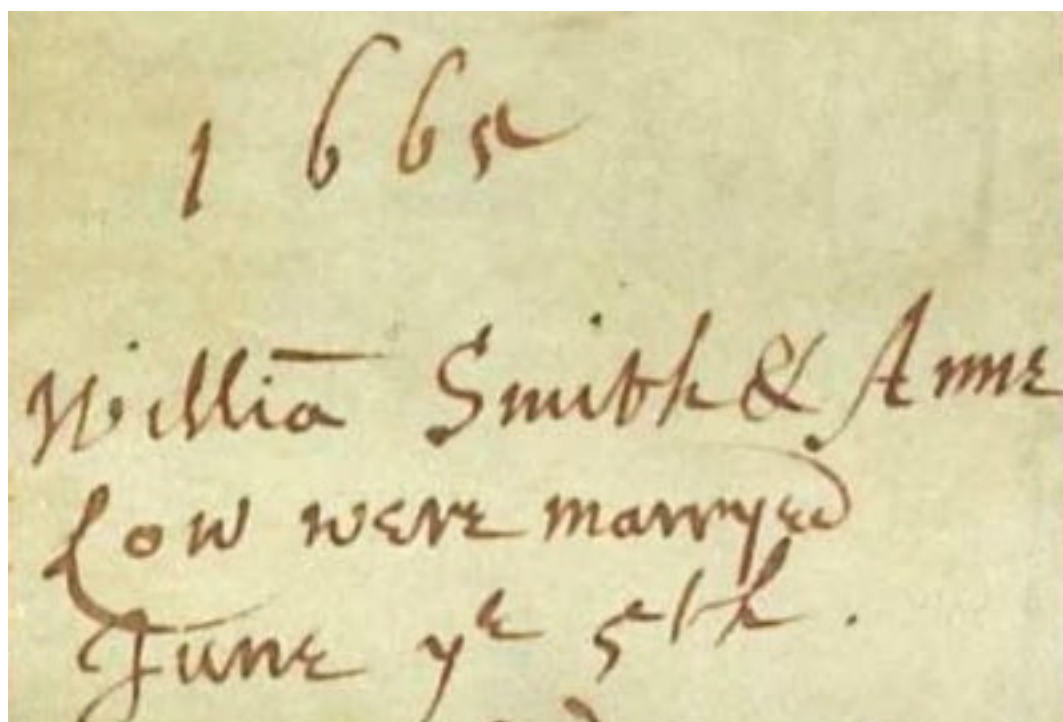 1665
Williā Smith & Anne
Low were marryed
June yᵉ 5th.